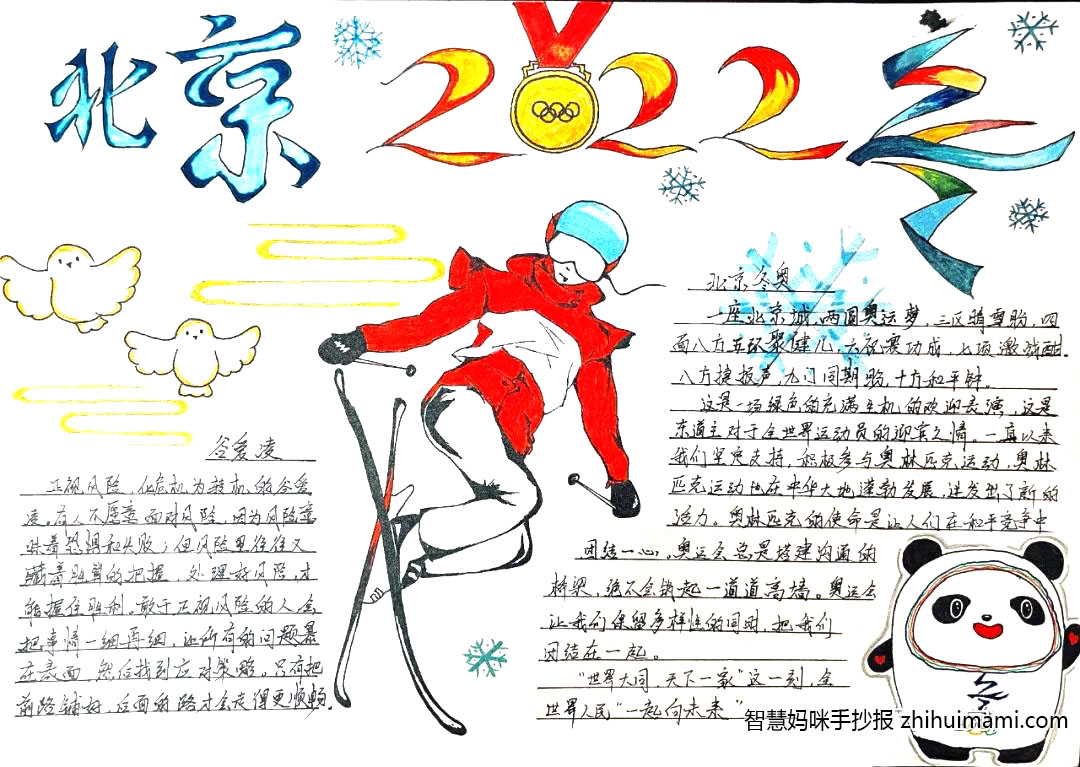 北京2022
北京冬奥
一座北京城,两圆奥运梦,三区晴雪盼,四
面八方五环聚健儿,六视赛功成,七项激战酣。
八方捷报声,九门同期盼,十方和平钟。
这是一场绿色的充满生机的欢迎表演,这是
东道主对于全世界运动员的迎宾之情。一真以来
我们坚定支持,积极参与奥林匹克运动,奥林
匹克运动也在中华大地蓬勃发展,迸发出了新的
活力。奥林匹克的使命是让人们在和平竞争中
团结一心。奥运会总是搭建沟通的
桥梁,绝不会筑起一道道高墙。奥运会
让我们保留多样性的同时,把我们
团结在一起。
“世界大同,天下一家”这一刻,全
世界人民“一起向未来”
谷爱凌
正视风险,化危机为转机的谷爱
凌。有人不愿意面对风险,因为风险意
味着恐惧和失败;但风险里往往又
藏着胜算的把握,处理好风险,才
能握住胜利,敢于正视风险的人会
把事情一细再细,让所有的问题暴
在表面,然后找到应对策略。只有把
前路铺好,后面的路才会走得更顺畅。
智慧妈咪手抄报 zhihuimami.com